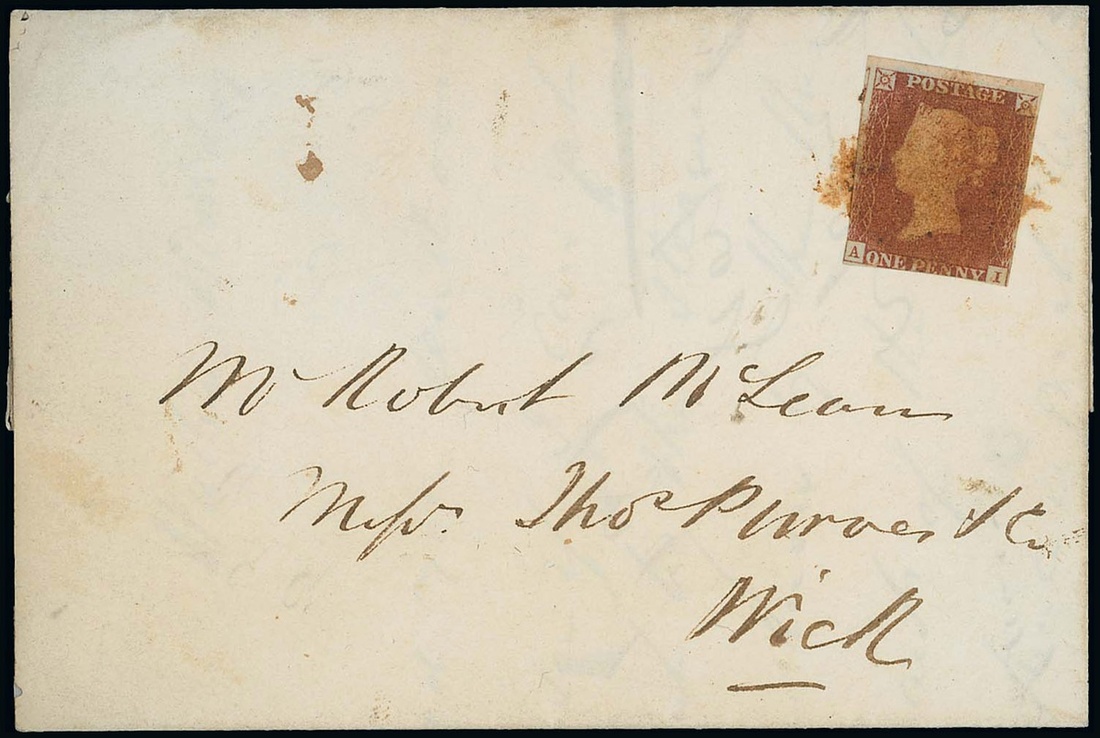 POSTAGE
A ONE PENNY I
Mr Robert McLean
Messrs Thos Purves & Co
Wick